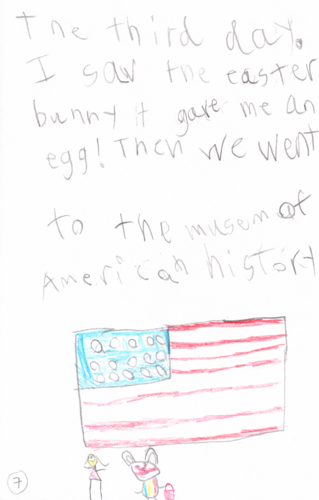 The third day.
I saw the easter
bunny it gave me an
egg! Then we went
to the musem of
American history
7